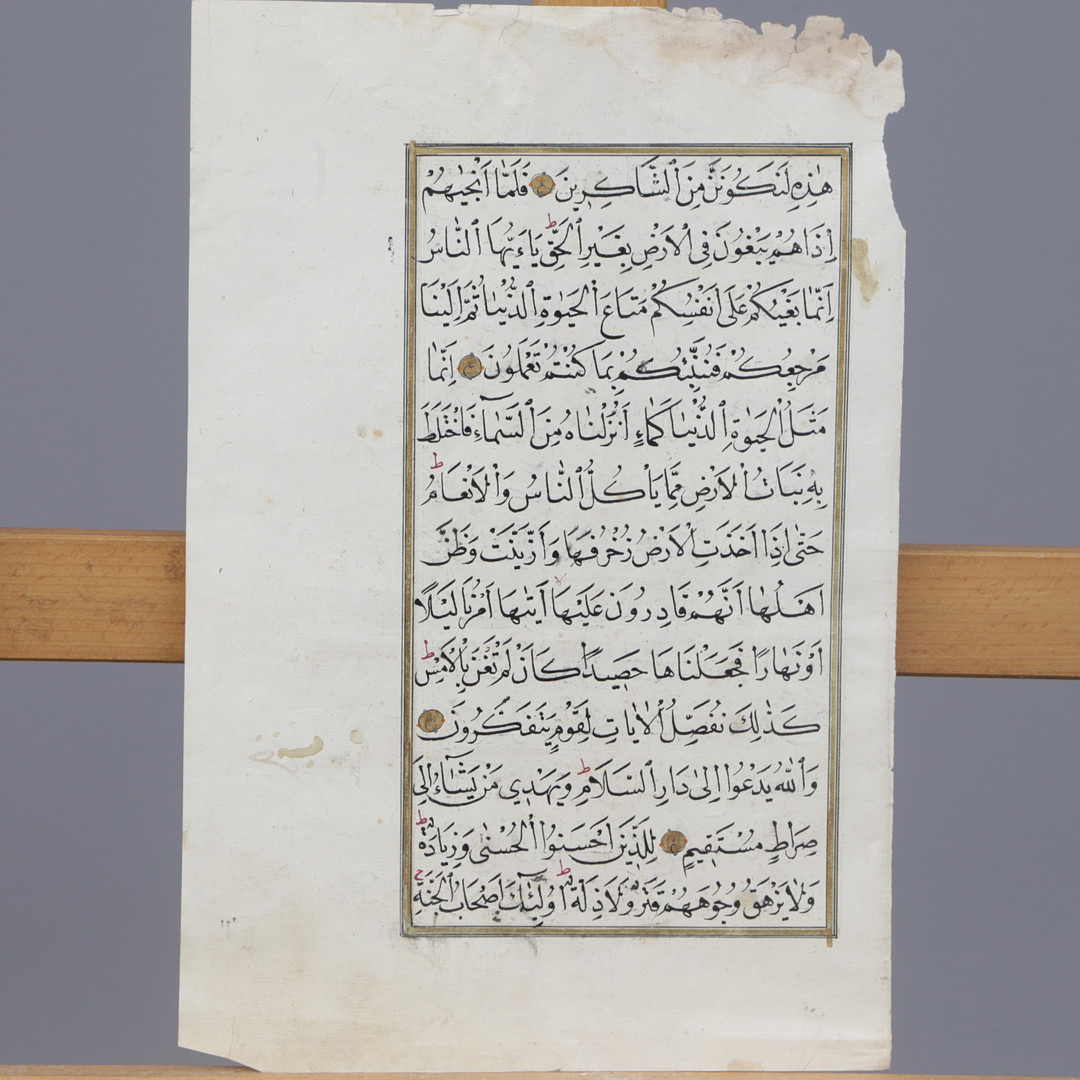 هٰذِهِ لَنَكُونَنَّ مِنَ ٱلشَّاكِرِينَ فَلَمَّا اَنْجٰيهُمْ
اِذَا هُمْ يَبْغُونَ فِى ٱلْاَرْضِ بِغَيْرِ ٱلْحَقِّ ط يَاءَيُّهَا ٱلنَّاسُ
اِنَّمَا بَغْيُكُمْ عَلٰى اَنْفُسِكُمْ مَتَاعَ ٱلْحَيٰوةِ ٱلدُّنْيَا ثُمَّ اِلَيْنَا
مَرْجِعُكُمْ فَنُنَبِّئُكُمْ بِمَا كُنْتُمْ تَعْمَلُونَ اِنَّمَا
مَثَلُ ٱلْحَيٰوةِ ٱلدُّنْيَا كَمَاءٍ اَنْزَلْنَاهُ مِنَ ٱلسَّمَاءِ فَاخْتَلَطَ
بِهِ نَبَاتُ ٱلْاَرْضِ مِمَّا يَاْكُلُ ٱلنَّاسُ وَٱلْاَنْعَامُ ط
حَتّٰى اِذَا اَخَذَتِ ٱلْاَرْضُ زُخْرُفَهَا وَٱزَّيَّنَتْ وَظَنَّ
اَهْلُهَا اَنَّهُمْ قَادِرُونَ عَلَيْهَا لا اَتٰيهَا اَمْرُنَا لَيْلًا
اَوْ نَهَارًا فَجَعَلْنَاهَا حَصِيدًا كَاَنْ لَمْ تَغْنَ بِالْاَمْسِ ط
كَذٰلِكَ نُفَصِّلُ ٱلْاٰيَاتِ لِقَوْمٍ يَتَفَكَّرُونَ
وَٱللّٰهُ يَدْعُوا اِلٰى دَارِ ٱلسَّلَامِ ط وَيَهْدِى مَنْ يَشَاءُ اِلٰى
صِرَاطٍ مُسْتَقِيمٍ لِلَّذِينَ اَحْسَنُوا ٱلْحُسْنٰى وَزِيَادَةٌ ط
وَلَا يَرْهَقُ وُجُوهَهُمْ قَتَرٌ وَلَا ذِلَّةٌ ط اُولٰئِكَ اَصْحَابُ ٱلْجَنَّةِ ج